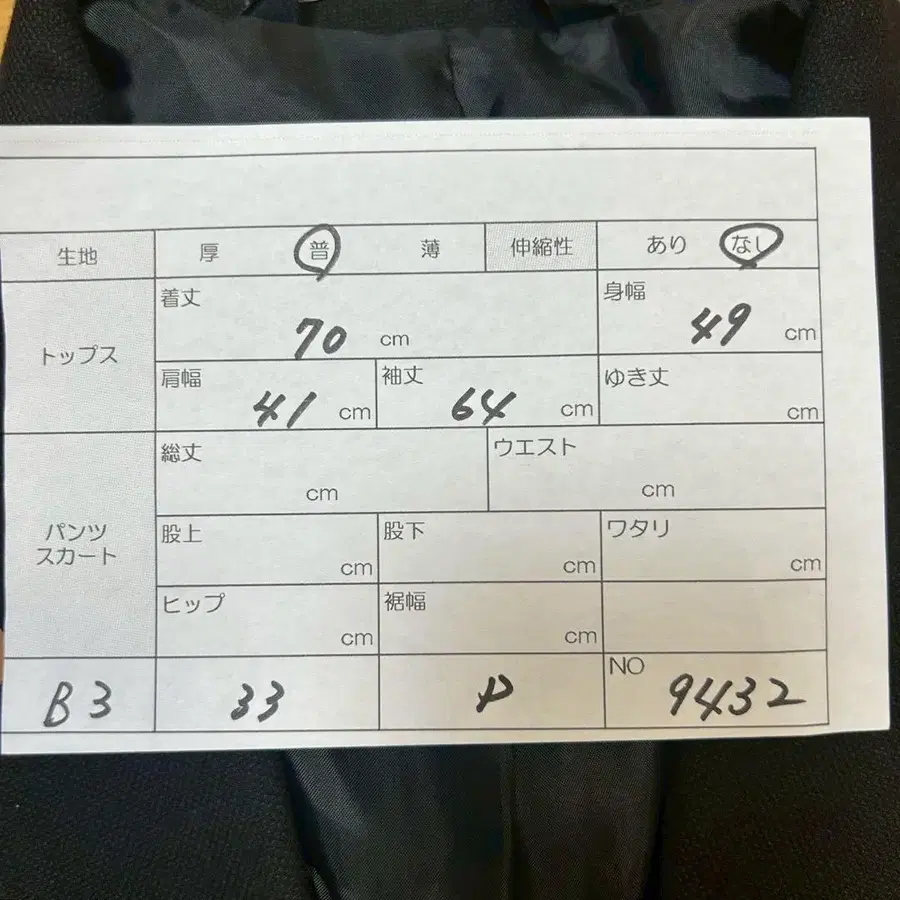 生地 厚 普 薄 伸縮性 あり なし
トップス
着丈 70 cm 身幅 49 cm
肩幅 41 cm 袖丈 64 cm ゆき丈 cm
パンツ
スカート
総丈 cm ウエスト cm
股上 cm 股下 cm ワタリ cm
ヒップ cm 裾幅 cm
B3 33 NO 9432